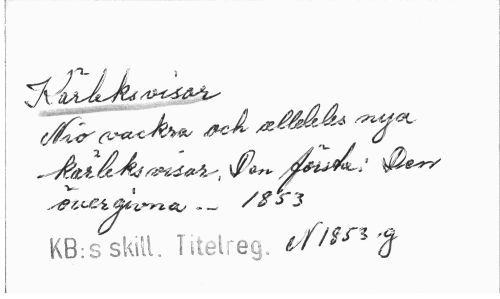 Kärleksvisor
Nio vackra och alldeles nya
kärleksvisor. Den första: Den
övergivna -- 1853
KB:s skill. Titelreg. N 1853.g